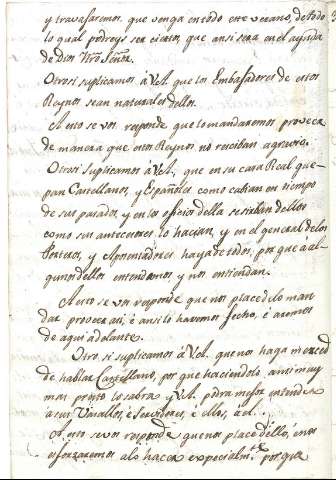 y travajaremos que venga en todo este verano, de todo
lo qual podreys ser ciertos, que ansi sera con el ayuda
de Dios Ntro Señor.
Otrosi suplicamos á V.A. que los Embajadores de estos
Reynos sean naturales dellos.
A esto se vos responde que lo mandaremos proveer
de manera que estos Reynos no resciban agravio.
Otrosi suplicamos á V.A. que en su casa Real que-
pan Castellanos, y Españoles como cabian en tiempo
de sus pasados, y en los oficios della se sirban dellos
como sus antecesores lo hacian, y en el general de los
Porteros, y Aposentadores haya de todos, por que a al-
gunos dellos entendamos y nos entiendan.
A esto se vos responde que nos place de lo man-
dar proveer asi, é ansi lo havemos fecho, é aremos
de aqui adelante.
Otro si suplicamos á V.A. que nos haga merced
de hablar Castellano, por que haciendolo ansi muy
mas presto lo sabra y V.A. podra mejor entender
a sus Vasallos, é servidores, é ellos, á el.
A esto se vos responde que nos place dello, é nos
esforzaremos a lo hacer especialmte por que